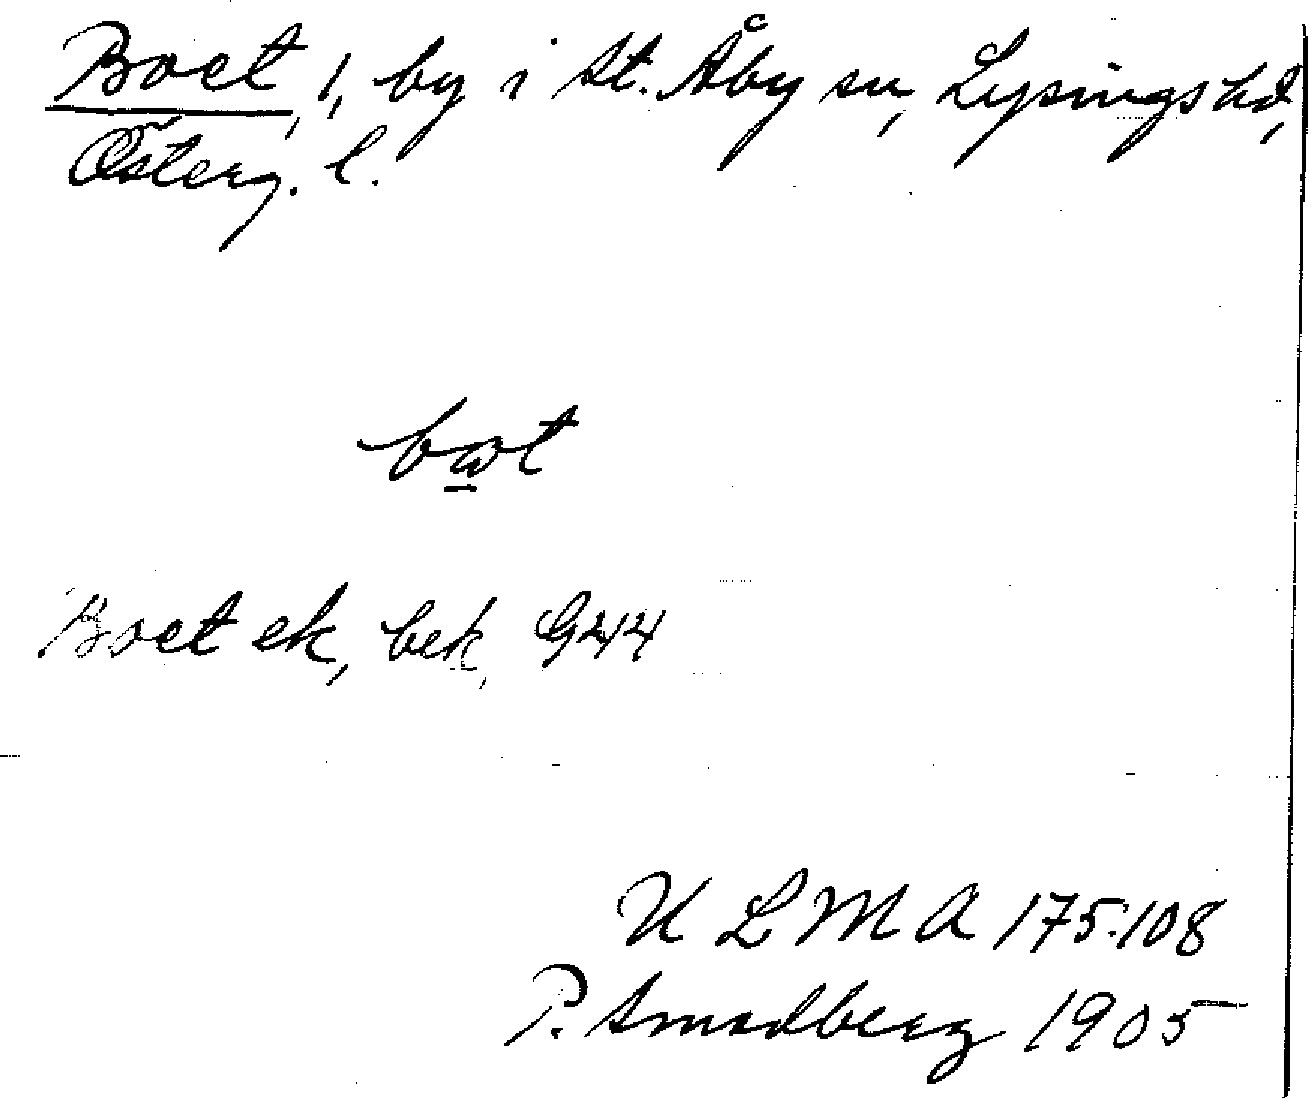 Boet, 1, by i St. Åby sn, Lysings hd,
Österg. l.
Boet ek, bek, G 44
ULMA 175:108
P. Smedberg 1905